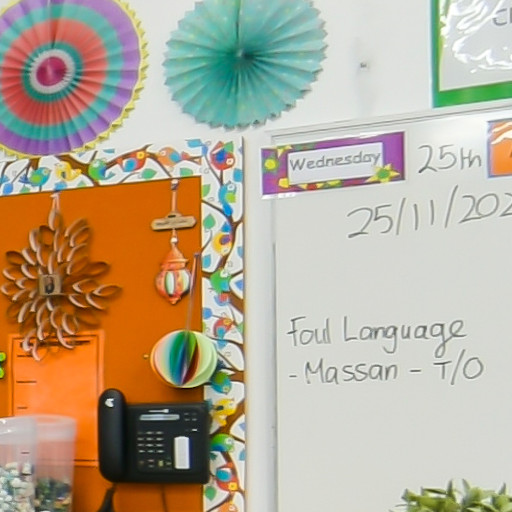 Wednesday 25th
25/11/202
Foul Language
- Massan - T/O